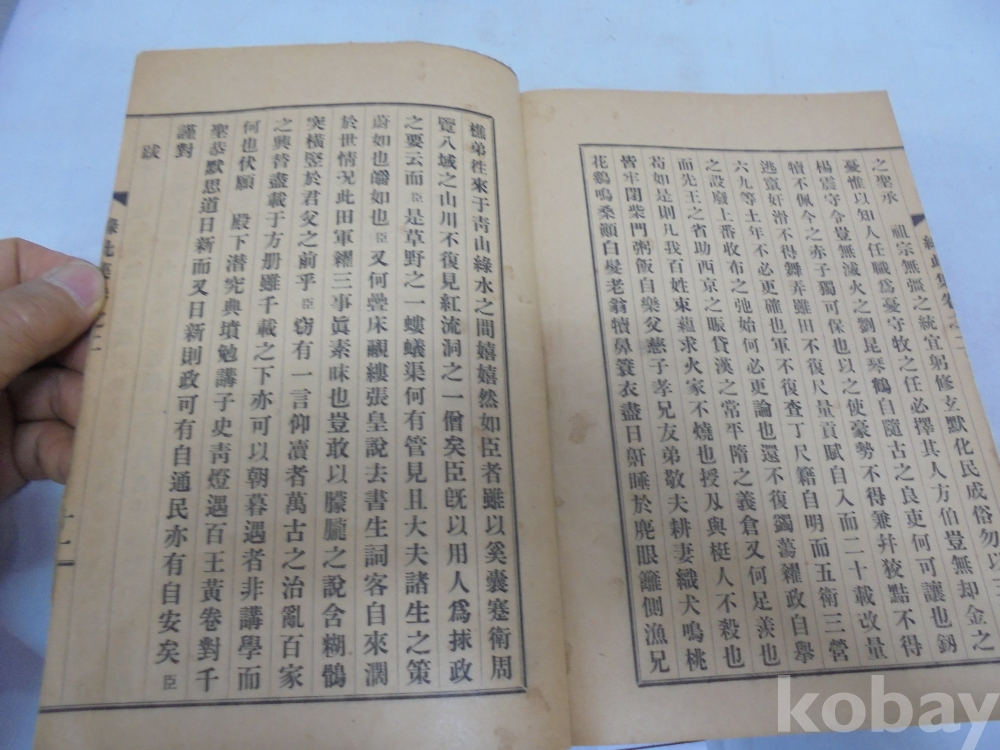 之聖承 祖宗無彊之統宜躬修玄默化民成俗勿以
憂惟以知人任職爲憂守牧之任必擇其人方伯豈無却金之
楊震守令豈無滅火之劉昆琴鶴自隨古之良吏何可讓也
犢不佩今之赤子獨可保也以之使豪勢不得兼幷狡點不得
逃竄奸滑不得舞弄雖田不復尺量貢賦自入而二十載改量
六九等土年不必更確也軍不復查丁尺籍自明而五衛三營
之設廢上番收布之弛始何必更論也還不復蠲蕩糴政自擧
而先王之省助西京之賑貸漢之常平隋之義倉又何足羨也
苟如是則凡我百姓東蘊求火家不燒也授及與梃人不殺也
皆牢閉柴門粥飯自樂父慈子孝兄友弟敬夫耕妻織犬鳴桃
花鷄鳴桑顚白髮老翁犢鼻簑衣盡日鼾睡於麂眼籬側漁兄
樵弟徃來于靑山綠水之間嬉嬉然如臣者雖以奚囊蹇衛周
覽八域之山川不復見紅流洞之一僧矣臣旣以用人爲捄政
之要云而臣是草野之一螻蟻渠何有管見且大夫諸生之策
蔚如也皤如也臣又何疊床覼縷張皇說去書生詞客自來濶
於世情况此田軍糴三事眞素昧也豈敢以朦朧之說含糊鶻
突橫竪於君父之前乎臣竊有一言仰凟者萬古之治亂百家
之興替盡載于方册雖千載之下亦可以朝暮遇者非講學而
何也伏願 殿下潜究典墳勉講子史靑燈遇百王黃卷對千
聖恭默思道日新而又日新則政可有自通民亦有自安矣臣
謹對
跋
kobay